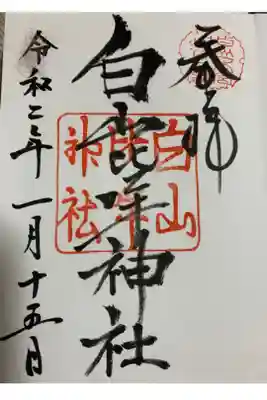 奉拝
白山比咩神社
白山
比咩
神社
令和二年一月十五日